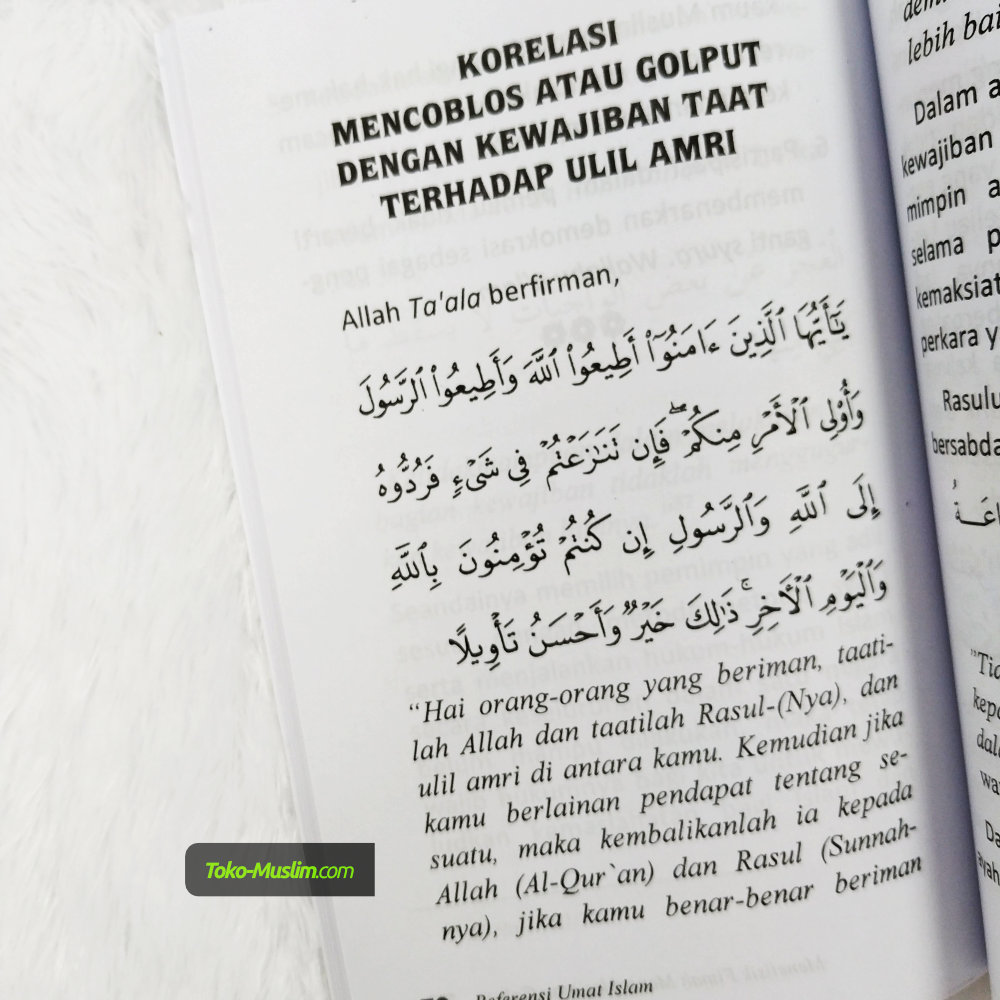 KORELASI
MENCOBLOS ATAU GOLPUT
DENGAN KEWAJIBAN TAAT
TERHADAP ULIL AMRI
Allah Ta'ala berfirman,
يَـٰٓأَيُّهَا ٱلَّذِينَ ءَامَنُوٓا۟ أَطِيعُوا۟ ٱللَّهَ وَأَطِيعُوا۟ ٱلرَّسُولَ
وَأُو۟لِى ٱلْأَمْرِ مِنكُمْ ۖ فَإِن تَنَـٰزَعْتُمْ فِى شَىْءٍ فَرُدُّوهُ
إِلَى ٱللَّهِ وَٱلرَّسُولِ إِن كُنتُمْ تُؤْمِنُونَ بِٱللَّهِ
وَٱلْيَوْمِ ٱلْـَٔاخِرِ ۚ ذَٰلِكَ خَيْرٌ وَأَحْسَنُ تَأْوِيلًا
“Hai orang-orang yang beriman, taati-
lah Allah dan taatilah Rasul-(Nya), dan
ulil amri di antara kamu. Kemudian jika
kamu berlainan pendapat tentang se-
suatu, maka kembalikanlah ia kepada
Allah (Al-Qur`an) dan Rasul (Sunnah-
nya), jika kamu benar-benar beriman
Referensi Umat Islam
lebih
Dalam
kewajiban
mimpin
selama
perkara
bersabda
Toko-Muslim.com